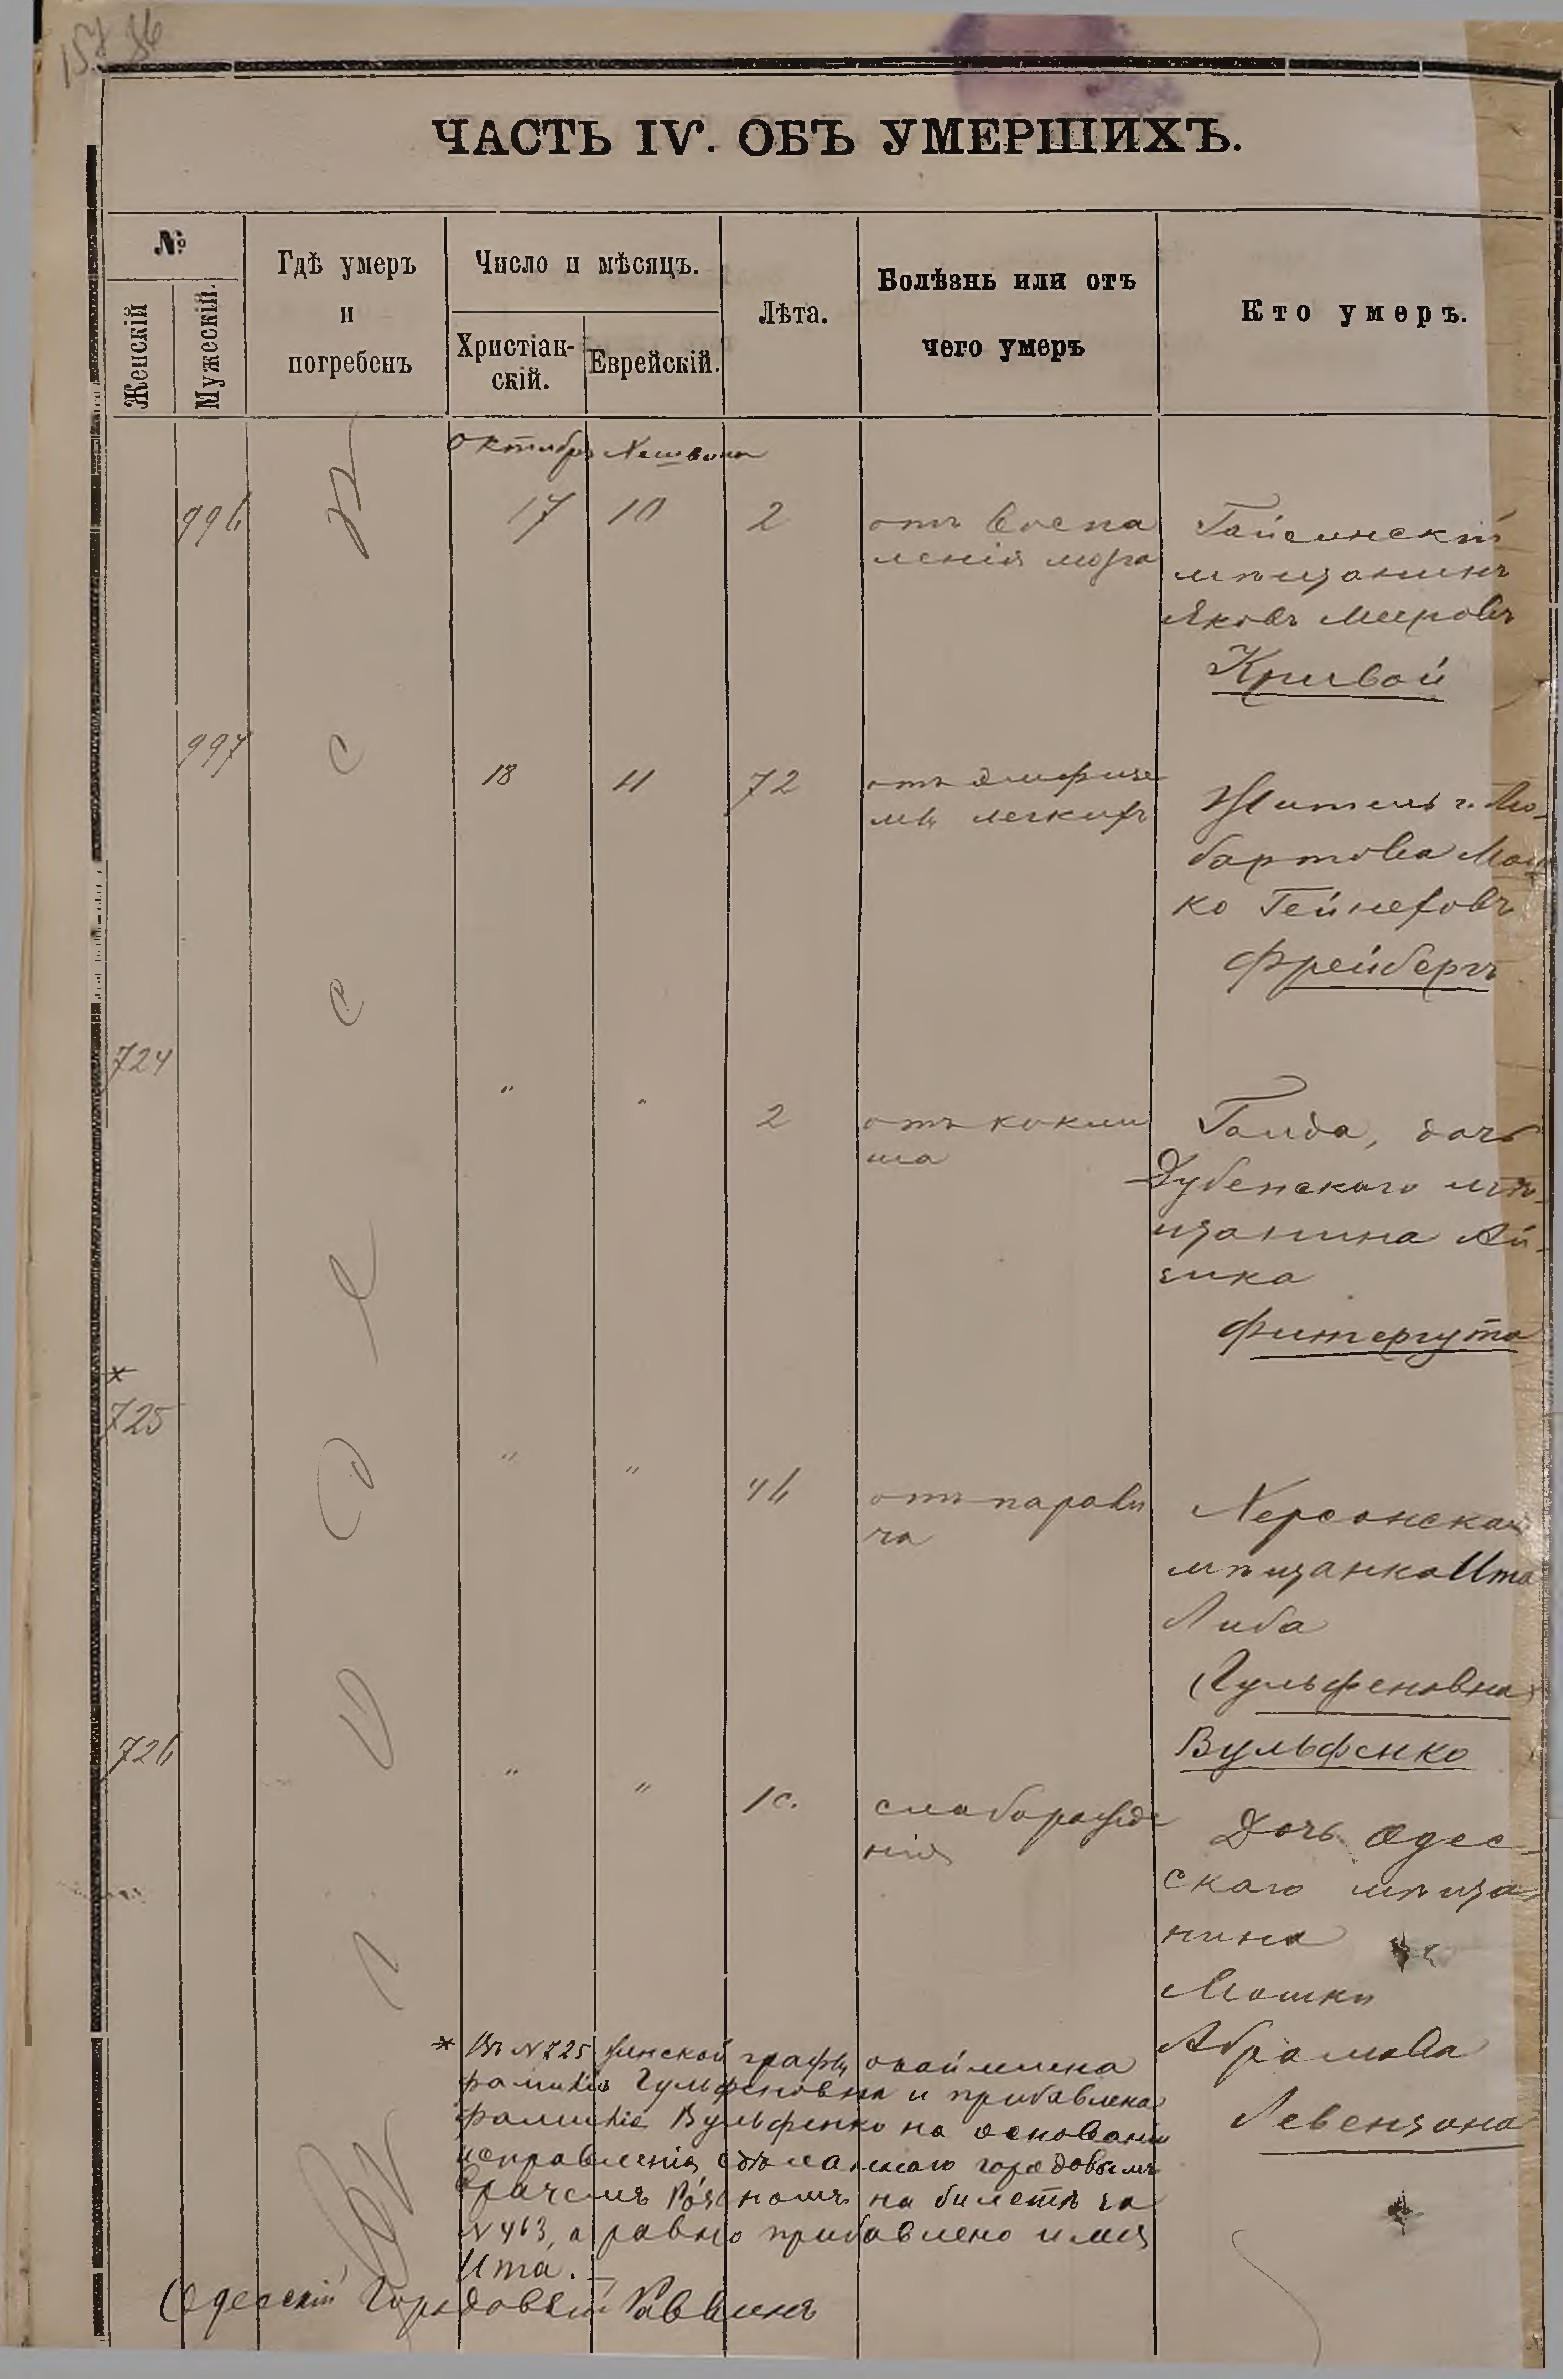 157 86
ЧАСТЬ IV. ОБЪ УМЕРШИХЪ.
№
Женскій
Мужескій.
Гдѣ умеръ
и
погребенъ
Число и мѣсяцъ.
Христіан-
скій.
Еврейскій.
Лѣта.
Болѣзнь или отъ
чего умеръ
Кто умеръ.
Октябрь Хешвонъ
996 17 10 2
отъ Воспа
ленія мозга
Гайсинскій
мѣщанинъ
Яковъ Меировъ
Кривой
997 18 11 72
отъ эмфизе
мы легкихъ
Житель г. Лю-
бартова Мош
ко Гейнеховъ
Фрейбергъ
724 " " 2
отъ коклю
ша
Голда, дочь
Дубенскаго мѣ-
щанина Ай-
зика
Фитергута
*
725 " " 46
отъ парали
ча
Херсонская
мѣщанка Ита
Либа
(Гульфеновна)
Вульфенко
726 " " 1 с.
слаборожде
нія
Дочь Одес-
скаго мѣща
нина
Мошки
Абрамова
Левензона
О д е с с
* Въ №725 женской графы окаймлена
фамилія Гульфеновна и прибавлена
фамилія Вульфенко на основаніи
исправленія, сдѣланнаго городовымъ
врачемъ на билетѣ за
№463, а равно прибавлено имя
Ита. –
Одесскій Городовой Раввинъ